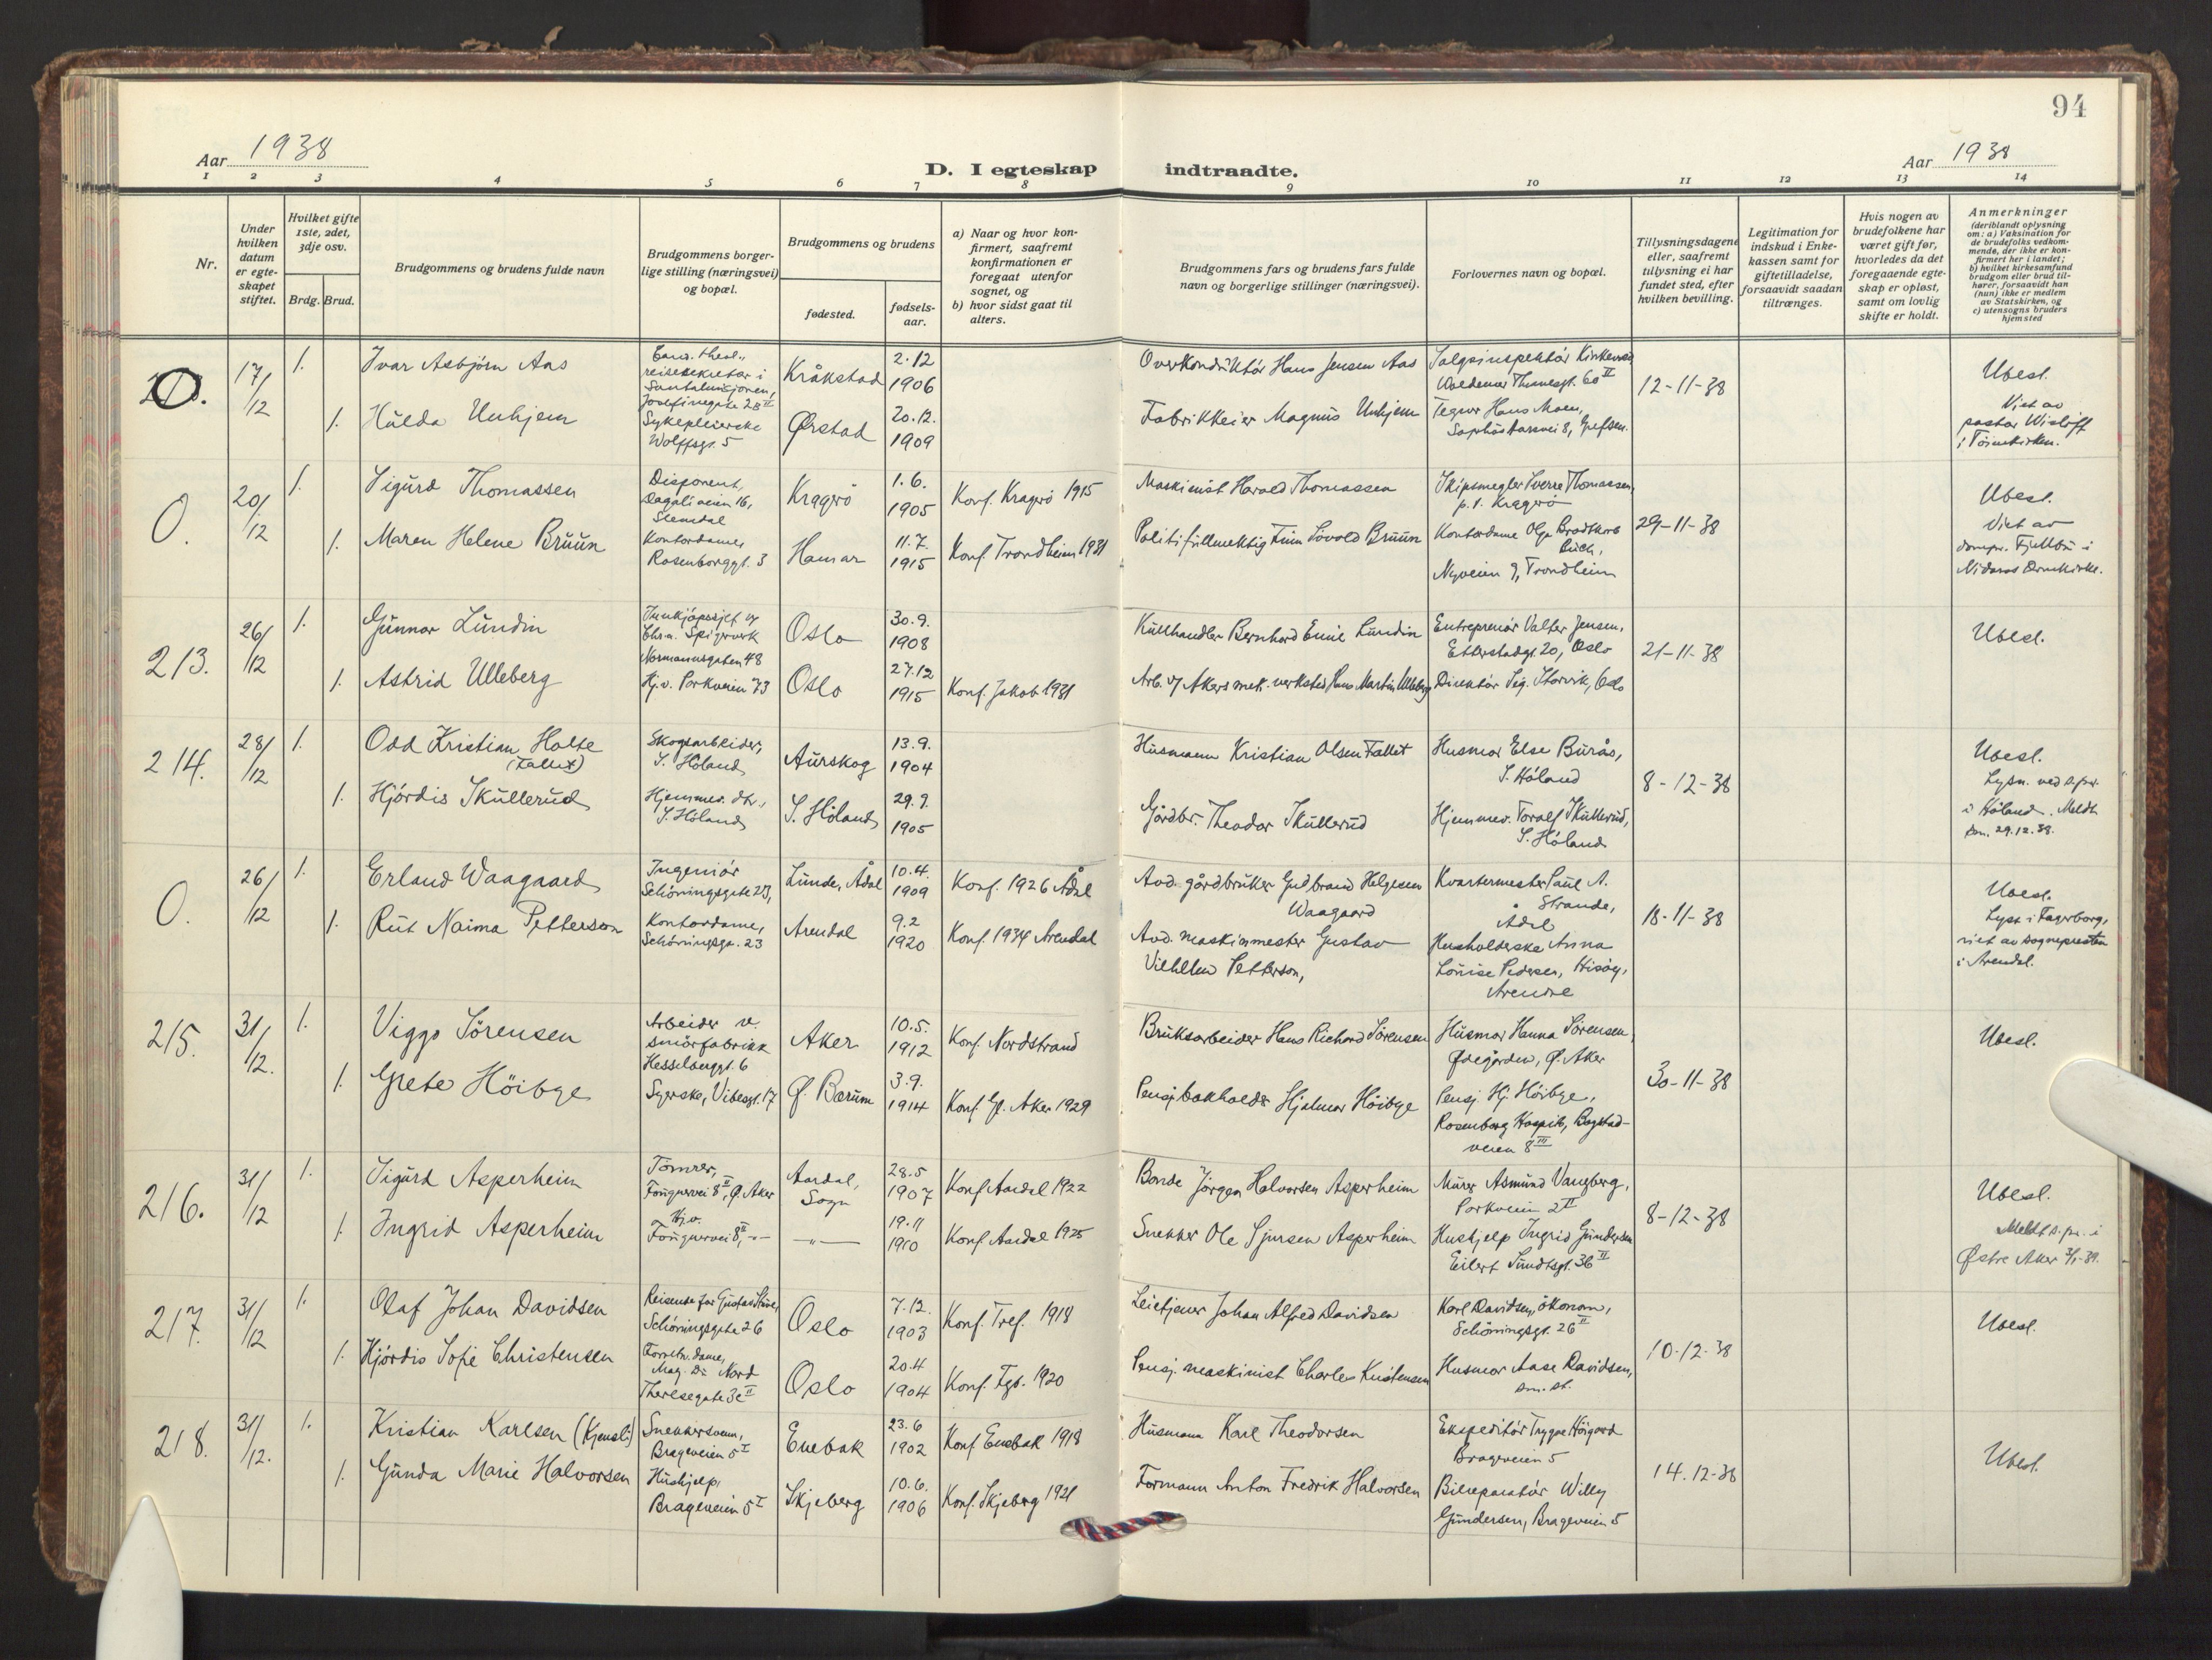 94
Aar 1938
D. I egteskap indtraadte.
Aar 1938
1 2 3 4 5 6 7 8 9 10 11 12 13 14
Nr.
Under hvilken datum er egteskapet stiftet.
Hvilket gifte 1ste, 2det, 3dje osv.
Brdg. Brud.
Brudgommens og brudens fulde navn
Brudgommens borgerlige stilling (næringsvei) og bopæl.
Brudgommens og brudens
fødested.
fødselsaar.
a) Naar og hvor konfirmert, saafremt konfirmationen er foregaat utenfor sognet, og
b) hvor sidst gaat til alters.
Brudgommens fars og brudens fars fulde navn og borgerlige stillinger (næringsvei).
Forlovernes navn og bopæl.
Tillysningsdagene eller, saafremt tillysning ei har fundet sted, efter hvilken bevilling.
Legitimation for indskud i Enkekassen samt for giftetilladelse, forsaavidt saadan tiltrænges.
Hvis nogen av brudefolkene har været gift før, hvorledes da det foregaaende egteskap er opløst, samt om lovlig skifte er holdt.
Anmerkninger (deriblandt oplysning om: a) Vaksination for de brudefolks vedkommende, der ikke er konfirmert her i landet; b) hvilket kirkesamfund brudgom eller brud tilhører, forsaavidt han (hun) ikke er medlem av Statskirken, og c) utensogns bruders hjemsted
O. 17/12 1. Ivar Asbjørn Aas
Cand. theol., reisesekretær i Santalmisjonen, Josefinegate 28 II
Kråkstad 2.12 1906
Overkonduktør Hans Jensen Aas
12-11-38
Ubesl.
Viet av pastor Wisløff i
1. Hulda Unhjem
Sykepleierske Wolffsgt. 5
Ørstad 20.12. 1909
Fabrikkeier Magnus Unhjem
Tegner Hans Moen,
Grefsen.
O. 20/12 1. Sigurd Thomassen
Disponent, Dagaliveien 16, Slemdal
Kragerø 1.6. 1905
Konf. Kragerø 1915
Maskinist Harald Thomassen
Skipsmegler Sverre Thomassen, p.t. Kragerø
29-11-38
Ubesl.
Viet av dompr. Fjellbu i Nidaros Domkirke.
1. Maren Helene Bruun
Kontordame, Rosenborggt. 3
Hamar 11.7. 1915
Konf. Trondheim 1931
Politifullmektig Finn Sóvold Bruun
Kontordame Olga Brodtkorb
Nyveien 9, Trondheim
213. 26/12 1. Gunnar Lundin
Innkjøpssjef v/ Chr.a. Spigerverk Normannsgaten 48
Oslo 30.9. 1908
Kullhandler Bernhard Emil Lundin
Entreprenør Valter Jensen, Etterstadgt. 20, Oslo
21-11-38
Ubesl.
1. Astrid Ulleberg
Hj.v. Parkveien 73
Oslo 27.12 1915
Konf. Jakob 1931
Arb. v/ Akers mek. verksted Hans Martin Ulleberg
Direktør Sig. Storvik, Oslo
214. 28/12 1. Odd Kristian Holte (Fallet)
Skogsarbeider, S. Høland
Aurskog 13.9. 1904
Husmann Kristian Olsen Fallet
Husmor Else Burås, S. Høland
8-12-38
Ubesl.
Lysn. ved s.pr. i Høland. Meldt sm. 29.12.38.
1. Hjørdis Skullerud
Hjemmev. dtr., S. Høland
S. Høland 29.9. 1905
Gårdbr. Theodor Skullerud
Hjemmev. Toralf Skullerud, S. Høland
O. 26/12 1. Erland Waagaard
Ingeniør Schøningsgate 23,
Lunde, Ådal 10.4. 1909
Konf. 1926 Ådal
Avd. gårdbruker Gulbrand Helgesen Waagaard
Kvartermester Paul A. Strande, Ådal
18-11-38
Ubesl.
Lyst i Fagerborg, viet av sognepresten i Arendal.
1. Rut Naima Petterson
Kontordame, Schøningsgt. 23
Arendal 9.2 1920
Konf. 1934 Arendal
Avd. maskinmester Gustav Vilhelm Petterson,
Husholderske Anna Louise Pedersen, Hisøy, Arendal
215. 31/12. 1. Viggo Sørensen
Arbeider v. smørfabrikk Hesselberggt. 6
Aker 10.5. 1912
Konf. Nordstrand
Bruksarbeider Hans Richard Sørensen
Husmor Hanna Sørensen, Ødegården, Ø. Aker
30-11-38
Ubesl.
1. Grete Höibye
Syerske, Vibesgt. 17
Ø. Bærum 3.9. 1914
Konf. Gl. Aker 1929
Pensj. bokholder Hjalmar Höibye
Pensj. Hj. Höibye, Rosenborg Hospits, Bogstadveien 8 III
216. 31/12 1. Sigurd Asperheim
Tømrer, Fougnervei 8 II, Ø. Aker
Aardal, Sogn 28.5 1907
Konf. Aardal 1922
Bonde Jørgen Halvorsen Asperheim
Murer Asmund Vangberg, Parkveien 2 II
8-12-38
Ubesl.
Meldt s.pr. i Østre Aker 3/1-39.
1. Ingrid Asperheim
Hj.v. Fougnervei 8 II, -"-
-"- 19.11 1910
Konf. Aardal 1925
Snekker Ole Sjursen Asperheim
Hushjelp Ingrid Gundersen Eilert Sundtsgt. 36 II
217. 31/12 1. Olaf Johan Davidsen
Reisende for Gustav
Schøningsgate 26
Oslo 7.12. 1903
Konf. Tref. 1918
Leietjener Johan Alfred Davidsen
Karl Davidsen, økonom, Schøningsgt. 26 II
10-12-38
Ubesl.
1. Hjørdis Sofie Christensen
Forretn. dame, Mag. Du Nord Theresegate 3c II
Oslo 20.4 1904
Konf. Fgb. 1920
Pensj. maskinist Charles Kristensen
Husmor Aase Davidsen, sm. st.
218. 31/12. 1. Kristian Karlsen (Kjensli)
Snekkersvenn, Brageveien 5 I
Enebak 23.6 1902
Konf. Enebak 1918
Husmann Karl Theodorsen
Ekspeditør Trygve Høigård Brageveien 5
14.12-38
Ubesl.
1. Gunda Marie Halvorsen
Hushjelp, Brageveien 5 I
Skjeberg 10.6. 1906
Konf. Skjeberg 1921
Formann Anton Fredrik Halvorsen
Bilreparatør Willy Gundersen, Brageveien 5